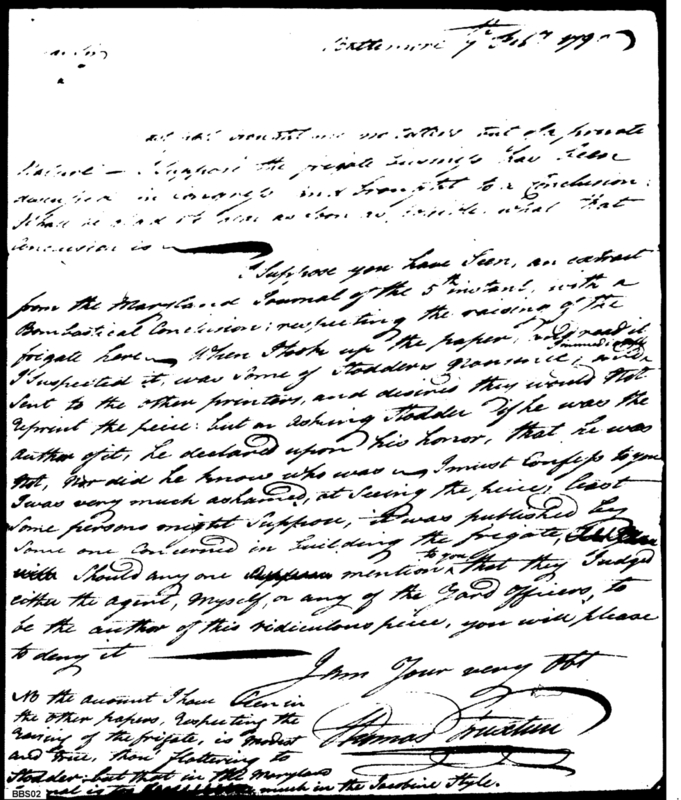 Baltimore 7th Feby 179
Sir
private
Nature — I Suppose the frigate business has been
in Congress and brought to a Conclusion:
I shall be glad to as soon as possible what that
Conclusion is
I Suppose you have Seen, an extract
from the Maryland Journal of the 5th instant, with a
Bombastical Conclusion: respecting the raising of the
frigate here. When I took up the paper, read it
I Suspected it, was Some of Stodders Nonsence; and immediately
Sent to the other printers, and desired they would Not
reprint the peice: but on asking Stodder if he was the
author of it, he declared upon his honor, that he was
Not, Nor did he know who was I must Confess to you
I was very much ashamed, at Seeing the peice, least
Some persons might Suppose, it was published by
Some one Concerned in building the frigate,
Should any one mention to you that they Judged
either the agent, Myself, or any of the Yard Officers, to
be the author of this ridiculous peice, you will please
to deny it
I am Your very Obt
Thomas Truxtun
the account I have Seen in
the other papers, respecting the
raising of the frigate, is modest
and true, tho' flattering to
Stodder. but that in the Maryland
is much in the Jacobine Style.
BBS02